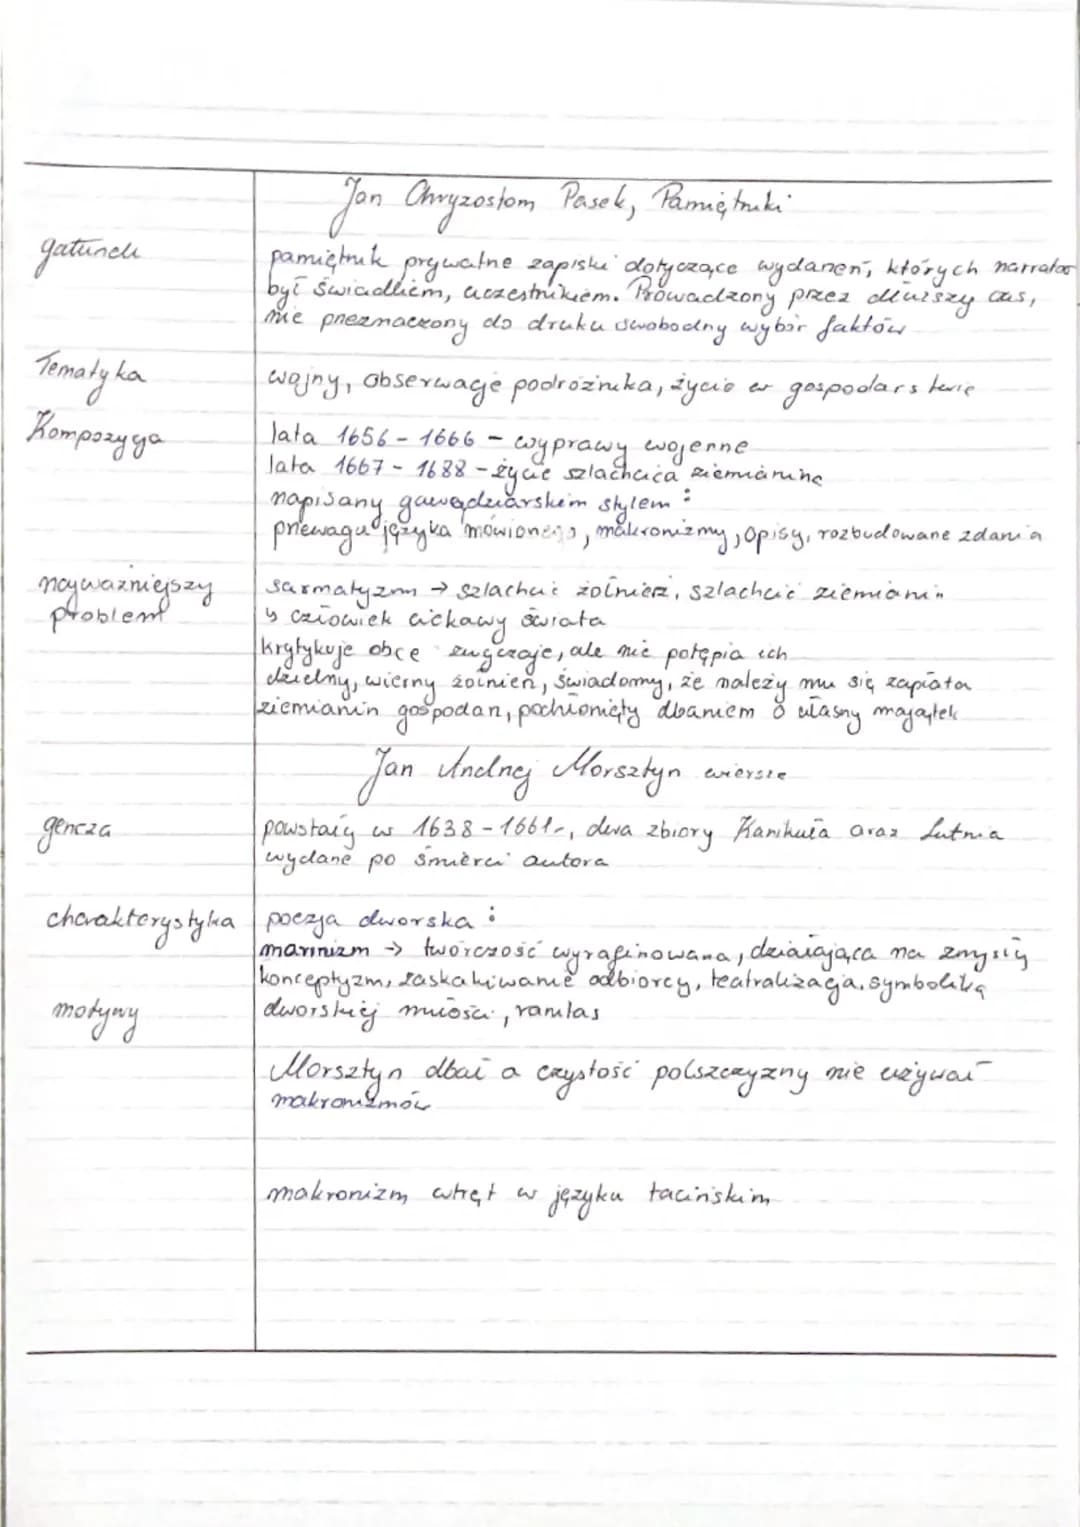 Jan Chryzostom Pasek, Pamiętniki
gatunek
pamiętnik prywatne zapiski dotyczące wydarzeń, których narrator
był świadkiem, uczestnikiem. Prowadzony przez dłuższy czas,
nie przeznaczony do druku swobodny wybór faktów
Tematyka
wojny, obserwacje podróżnika, życie w gospodarstwie
Kompozycja
lata 1656 - 1666 - wyprawy wojenne
lata 1667 - 1688 - życie szlachcica ziemianina
napisany gawędziarskim stylem:
przewaga języka mówionego, makronizmy, opisy, rozbudowane zdania
najważniejszy
problem
sarmatyzm → szlachcic żołnierz, szlachcic ziemianin
↳ człowiek ciekawy świata
krytykuje obce zwyczaje, ale nie potępia ich
dzielny, wierny żołnierz, świadomy, że należy mu się zapłata
ziemianin gospodarz, pochłonięty dbaniem o własny majątek
Jan Andrzej Morsztyn wiersze
geneza
powstały w 1638 - 1661r, dwa zbiory Kanikuła oraz Lutnia
wydane po śmierci autora
charakterystyka
poezja dworska:
marinizm → twórczość wyrafinowana, działająca na zmysły
konceptyzm, zaskakiwanie odbiorcy, teatralizacja, symbolika
motywy
dworskiej miłości, vanitas
Morsztyn dbał o czystość polszczyzny nie używał
makronizmów
makronizm wtręt w języku łacińskim